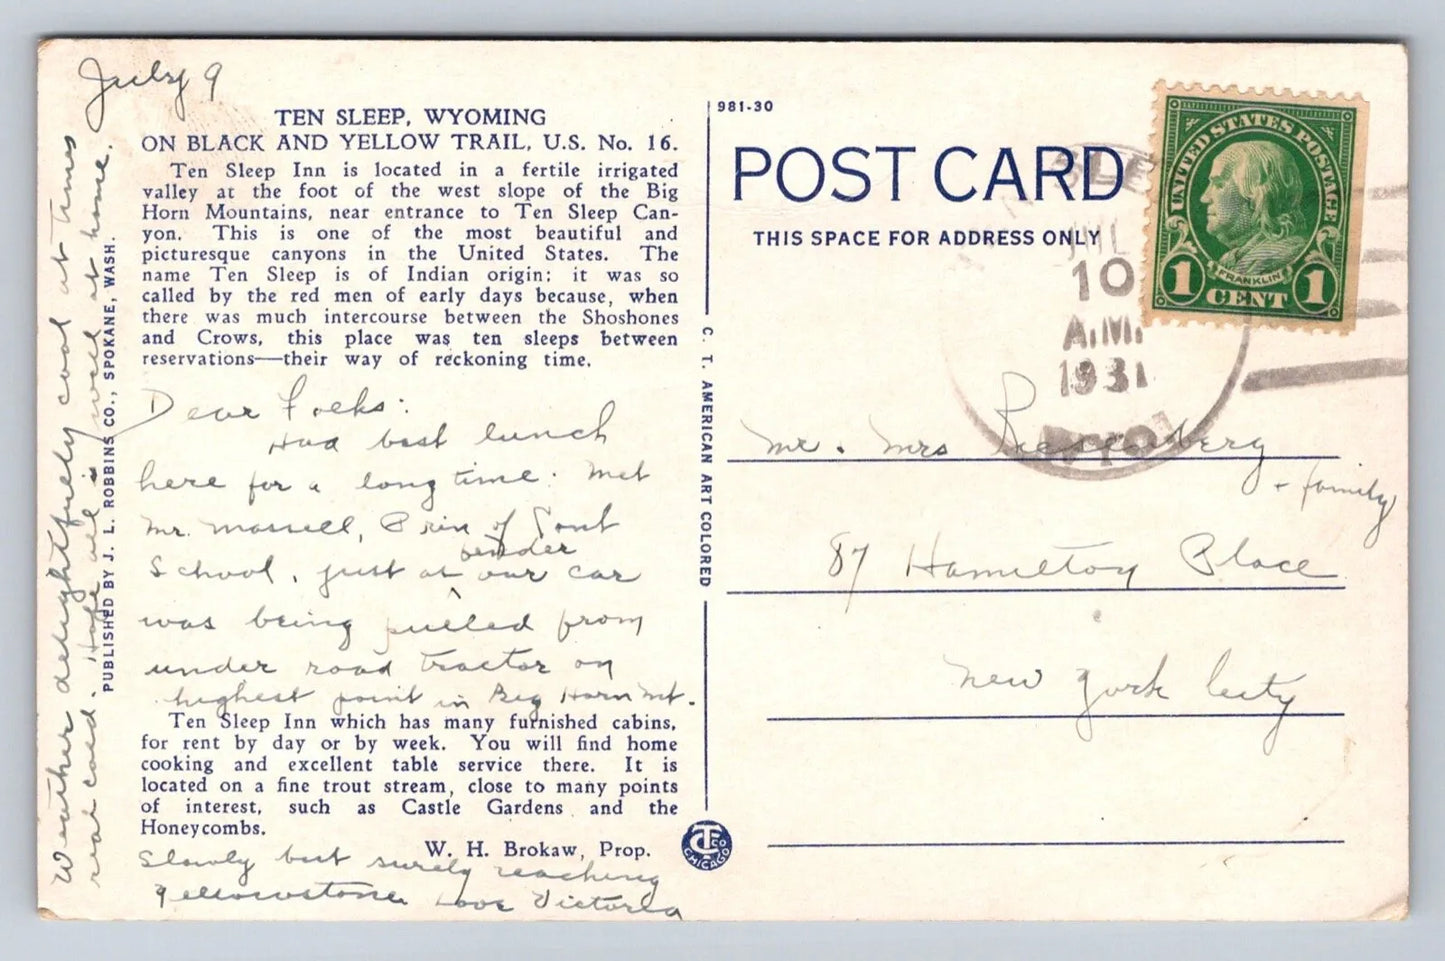 July 9
TEN SLEEP, WYOMING
ON BLACK AND YELLOW TRAIL, U.S. No. 16.
Ten Sleep Inn is located in a fertile irrigated
valley at the foot of the west slope of the Big
Horn Mountains, near entrance to Ten Sleep Can-
yon. This is one of the most beautiful and
picturesque canyons in the United States. The
name Ten Sleep is of Indian origin; it was so
called by the red men of early days because, when
there was much intercourse between the Shoshones
and Crows, this place was ten sleeps between
reservations—their way of reckoning time.
Dear Folks:
Had best lunch
here for a long time. Met
Mr. Prin of
School, just as our fender car
was being pulled from
under road tractor on
highest point in Big Horn Mt.
Ten Sleep Inn which has many furnished cabins,
for rent by day or by week. You will find home
cooking and excellent table service there. It is
located on a fine trout stream, close to many points
of interest, such as Castle Gardens and the
Honeycombs.
W. H. Brokaw, Prop.
Slowly but surely reaching
Yellowstone Love Victoria
Weather delightfully cool at times
real cold. Hope all is well at home.
PUBLISHED BY J. L. ROBBINS CO., SPOKANE, WASH.
C. T. AMERICAN ART COLORED
CTCO CHICAGO
981-30
POST CARD
THIS SPACE FOR ADDRESS ONLY
SLEE
JUL
10
A.M.
1931
WYO.
UNITED STATES POSTAGE
FRANKLIN
1 CENT 1
Mr. Mrs
+ family
87 Hamilton Place
New York City